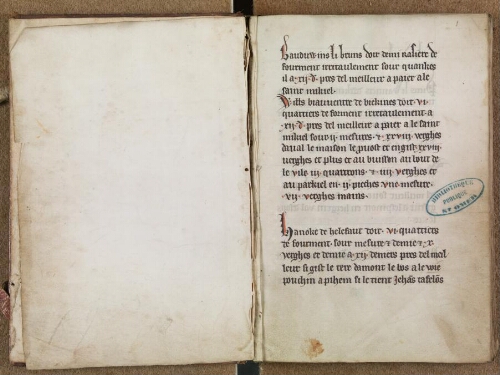 Bauduins li bruns doit demi rasiere de
fourment iretaulement sour quankes
il a · xij · d · pres del meilleur a paier a le
saint mikiel ·
Wills blauuentre de biekines doit · vi ·
quartiers de forment iretaulement · a
· xij · d · pres del meilleur a paier a le saint
mikiel sour · ij · mesures · et · xxviij · verghes
daual le maison le et · xxviij ·
verghes et plus et au buisson au lour de
le vile · iij · quartrons · et · iiij · verghes et
au parkiel en · ij · pieches vne mesure ·
· vij · verghes mains ·
Hanoke de helefaut doit · vi · quartiers
de fourment · sour mesure et demie et · x ·
verghes et demie a · xij · deniers pres del meil
leur si gist le tere damont le bos a le wie
pouchin a pihem si le tient Jehans
BIBLIOTHEQUE
PUBLIQUE
ST OMER